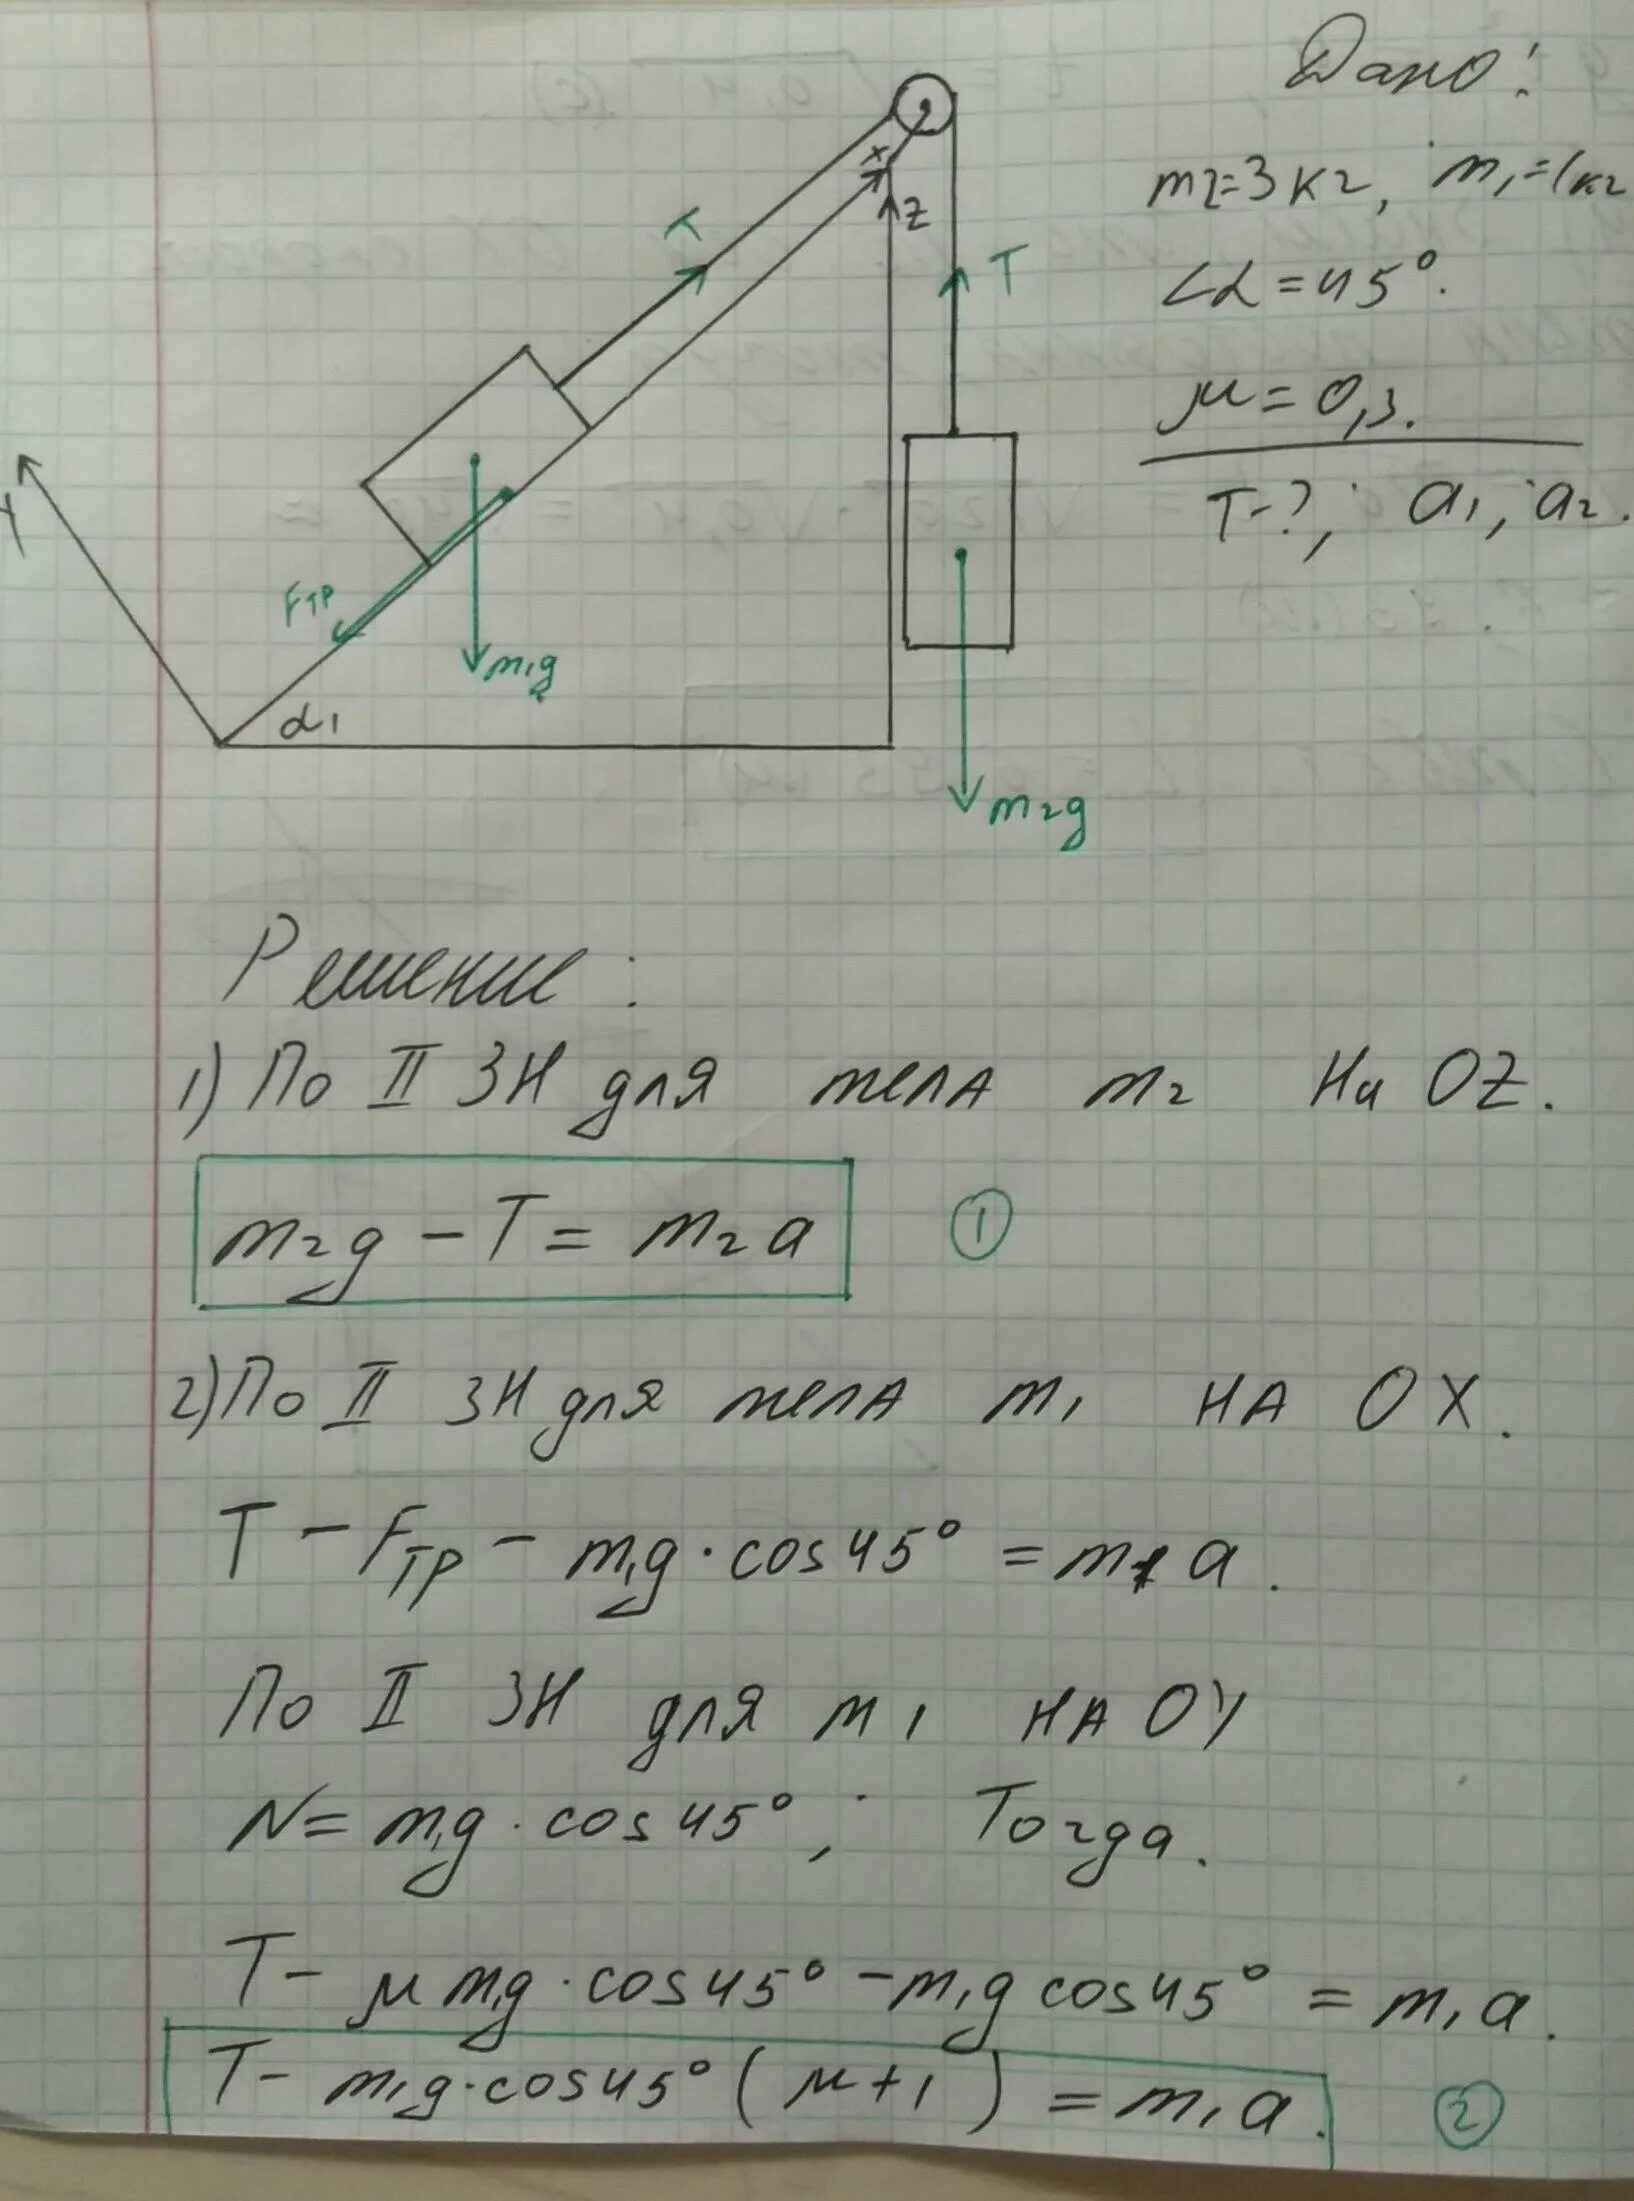 Дано:
m2=3кг, m1=1кг
∠α=45°.
μ=0,3.
T-?, a1, a2.
x
z
T
T
Y
Fтр
m1g
α1
m2g
Решение:
1) По II ЗН для тела m2 на OZ.
m2g - T = m2a ①
2) По II ЗН для тела m1 на OX.
T - Fтр - m1g · cos45° = m1a.
По II ЗН для m1 на OY
N = m1g · cos45°; Тогда.
T - μm1g · cos45° - m1g cos45° = m1a.
T - m1g · cos45° (μ+1) = m1a. ②